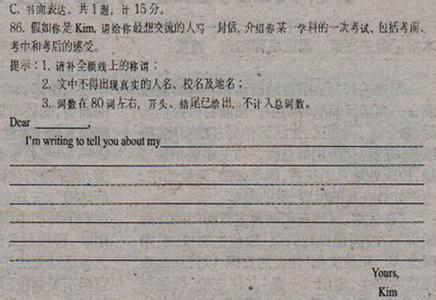 C. 书面表达。共1题，计15分。
86. 假如你是 Kim, 请给你最想交流的人写一封信，介绍你某一学科的一次考试，包括考前、
考中和考后的感受。
提示：1. 请补全横线上的称谓；
2. 文中不得出现真实的人名、校名及地名；
3. 词数在80词左右，开头、结尾已给出，不计入总词数。
Dear ________,
I'm writing to tell you about my
Yours,
Kim